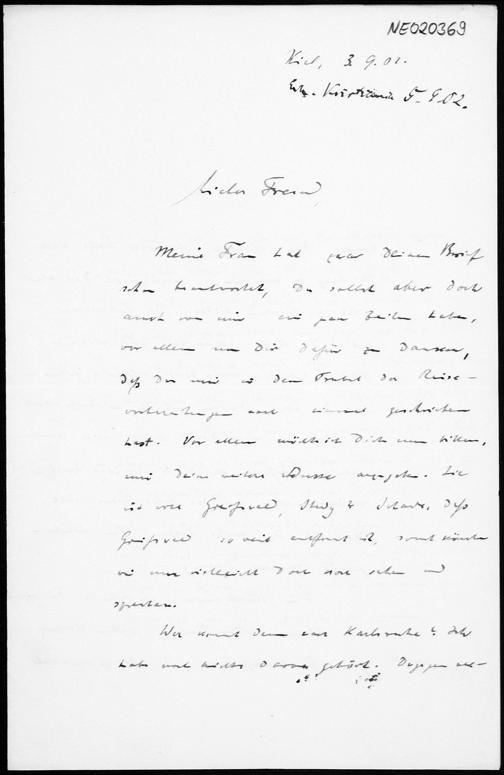 NE020369
Kiel, 3. 9. 02.
Kristiania 5. 9. 02.
Lieber Freund,
Meine Frau hat zwar Deinen Brief
schon beantwortet, Du sollst aber doch
auch von mir ein paar Zeilen haben,
vor allem um Dir dafür zu danken,
daß Du mir in dem Trubel der Reise-
vorbereitungen noch einmal geschrieben
hast. Vor allem möchte ich Dich nun bitten,
mir Deine weitere Adresse anzugeben. Sie
ist wohl Greifswald, Study? Schade, daß
Greifswald so weit entfernt ist, sonst könnten
wir uns vielleicht dort noch sehen und
sprechen.
Wer kommt denn nach Karlsruhe? Ich
habe noch nichts davon gehört. Dagegen